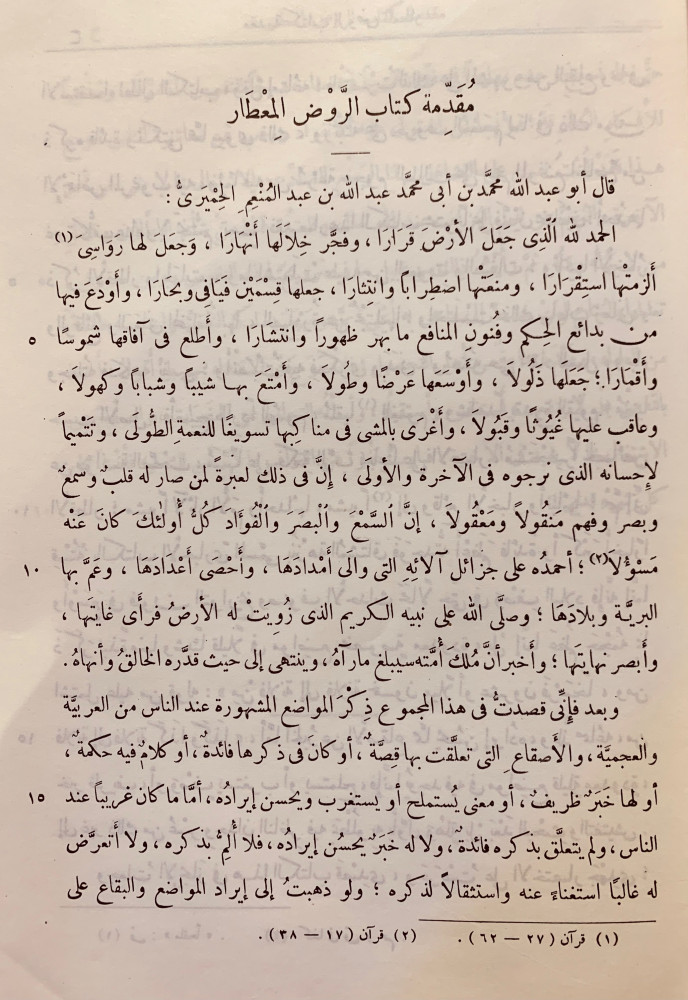 مُقَدِّمة كتاب الرَّوْض المِعْطَار
قال أبو عبد الله محمَّد بن أبى محمَّد عبد الله بن عبد المُنْعِمِ الحِمْيَرىُّ :
الحمد لله ٱلَّذِى جَعَلَ الأَرْضَ قَرَارَا ، وفجَّر خِلَالَهَا أَنْهَارَا ، وَجَعَلَ لها رَوَاسِىَ (١)
أَلزمتْها استِقْرَارَا ، ومنعَتْها اضطِراباً وانتِثارَا ، جعلها قِسْمَيْن فَيَافِى وبحَارَا ، وأَوْدَعَ فيها
٥ من بدائع الحِكم وفُنونِ المنافع ما بهر ظهوراً وانتشارَا ، وأَطلع فى آفاقها شموسًا
وأَقْمَارَا ؛ جَعَلَها ذَلُولَا ، وأَوْسَعَها عَرْضًا وطُولَا ، وأَمْتَعَ بهـا شيباً وشباباً وكهولَا ،
وعاقب عليها غُيُوثًا وقَبُولَا ، وأَغْرَى بالمشى فى مناكِبها تسويغًا للنعمة الطُّولَى ، وتَتْميماً
لإحسانه الذى نرجوه فى الآخرة والأولَى ، إنَّ فى ذلك لعبرةً لمن صار له قلبٌ وسمعٌ
وبصر وفهم مَنقُولاً ومَعْقُولَا ، إنَّ السَّمْعَ وٱلْبَصَرَ وٱلْفُؤَادَ كُلُّ أُولَٰئكَ كانَ عَنْه
١٠ مَسْؤُلَا (٢) ؛ أحمدُه على جزائل آلائِهِ التى والَى أَمْدادَهَا ، وأَحْصَى أَعْدَادَهَا ، وعَمَّ بها
البريَّة وبلادَهَا ؛ وصلَّى الله على نبيه الكريم الذى زُوِيَتْ له الأرضُ فرأَى غايتَها ،
وأَبصر نهايتَها ؛ وأَخبر أنَّ مُلْكَ أُمَّته سيبلغ ما رآهُ ، وينتهى إلى حيث قدَّره الخالقُ وأنهاهُ .
وبعد فإِنِّى قصدتُ فى هذا المجموع ذِكْرَ المواضع المشهورة عند الناس من العربيَّة
والعجميَّة ، والأَصقاعِ التى تعلَّقت بها قِصَّةٌ ، أو كانَ فى ذكرها فائدةٌ ، أو كلامٌ فيه حكمةٌ ،
١٥ أو لها خَبَرٌ ظريفٌ ، أو معنى يُستملح أو يستغرب ويحسن إيرادُه ، أمَّا ما كان غريباً عند
الناس ، ولم يتعلَّق بذكره فائدةٌ ، ولا له خَبَرٌ يحسُن إيرادُه ، فلا أُلِمُّ بذكره ، ولا أتعرَّض
له غالبًا استغناءً عنه واستثقالاً لذكره ؛ ولو ذهبتُ إلى إيراد المواضع والبقاع على
(١) قرآن (٢٧ — ٦٢) . (٢) قرآن (١٧ — ٣٨) .